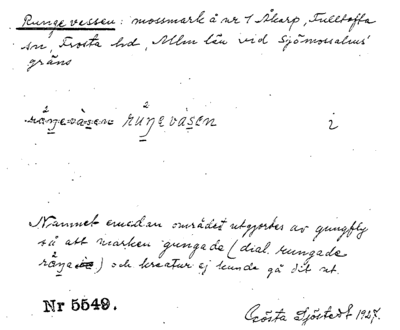 Rungevassen: mossmark å nr 1 Åkarp, Fulltofta
sn, Frosta hd, Mlm län vid Sjömossahus'
gräns
rå̊ŋevåsen rů̊ŋevåsen i
Namnet emedan området utgjordes av gungfly
så att marken gungade (dial. rungade
) och kreatur ej kunde gå dit ut.
Nr 5549.
Gösta Sjöstedt 1927.